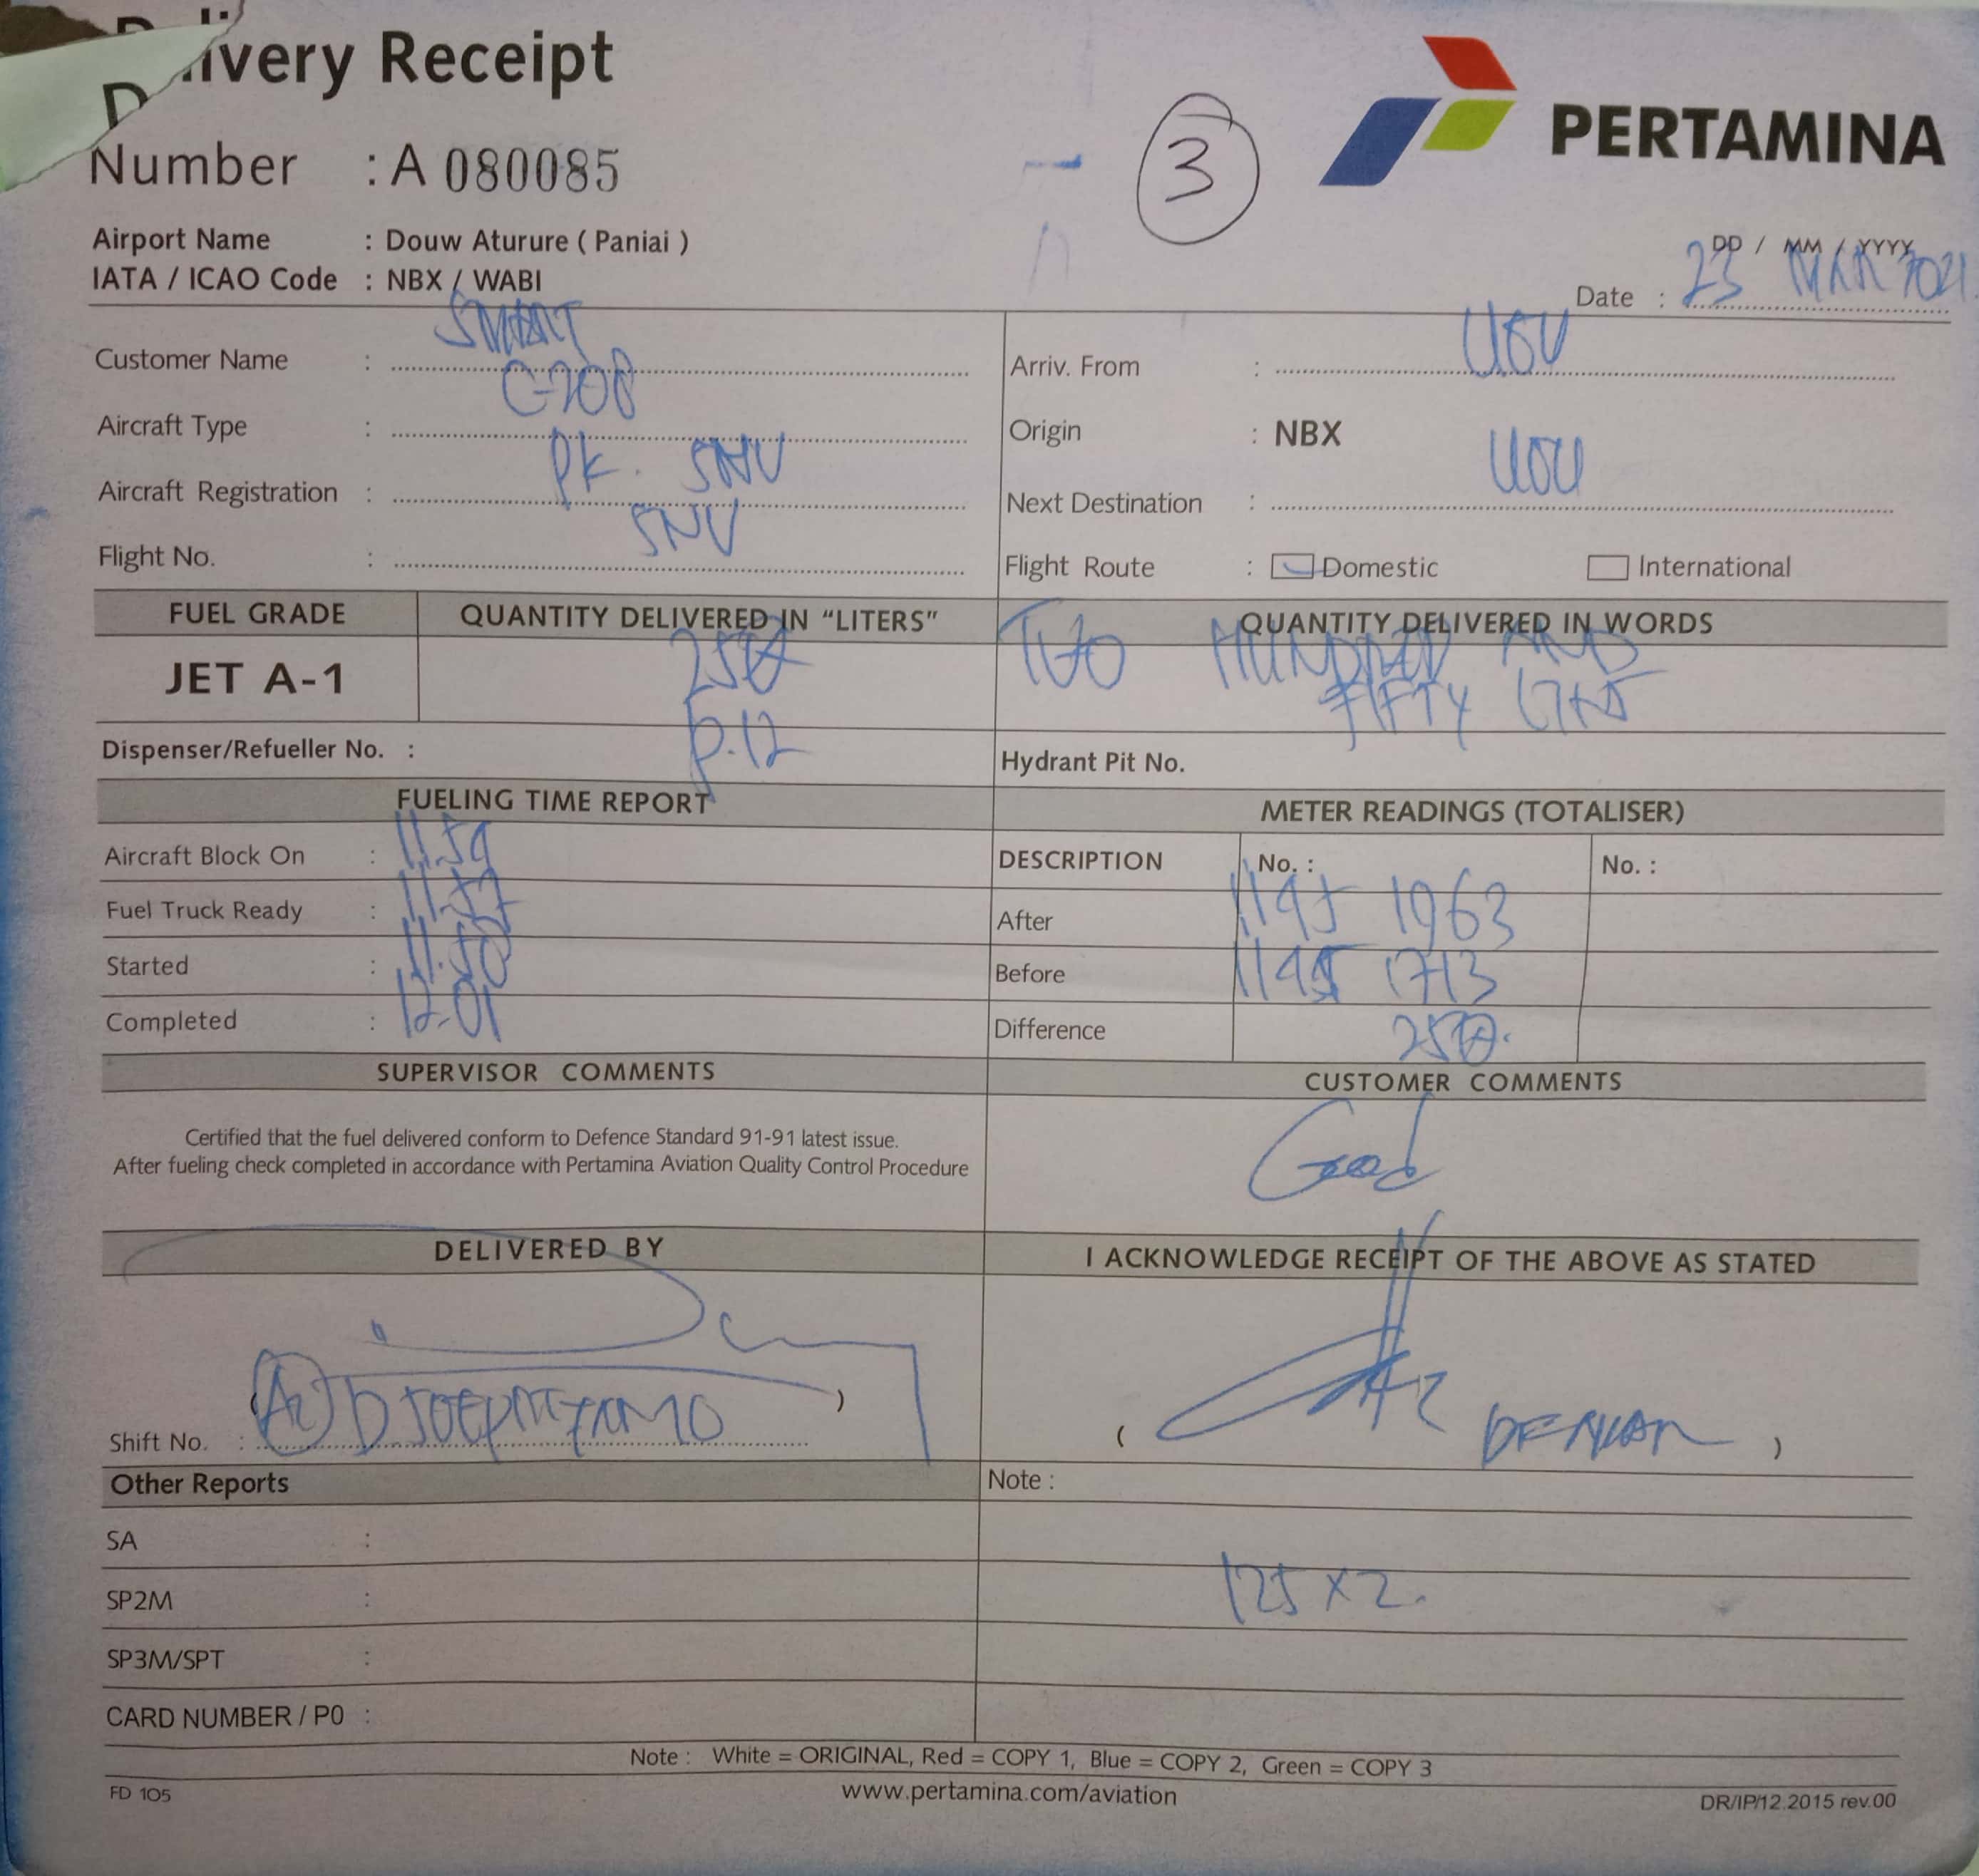 Delivery Receipt
PERTAMINA
3
Number : A 080085
Airport Name : Douw Aturure ( Paniai )
IATA / ICAO Code : NBX / WABI
DD / MM / YYYY
Date : 23 MAR 2021
Customer Name : SMART
Aircraft Type : C-208
Aircraft Registration : PK. SNV
Flight No. : SNV
Arriv. From :
Origin : NBX
Next Destination :
Flight Route : Domestic International
FUEL GRADE QUANTITY DELIVERED IN “LITERS” QUANTITY DELIVERED IN WORDS
JET A-1 250 TWO HUNDRED AND
FIFTY
Dispenser/Refueller No. : P.12 Hydrant Pit No.
FUELING TIME REPORT METER READINGS (TOTALISER)
Aircraft Block On : 11.59 DESCRIPTION No. : No. :
Fuel Truck Ready : 11.57 After 1195 1963
Started : 11.58 Before 1195 1713
Completed : 12.01 Difference 250.
SUPERVISOR COMMENTS CUSTOMER COMMENTS
Certified that the fuel delivered conform to Defence Standard 91-91 latest issue.
After fueling check completed in accordance with Pertamina Aviation Quality Control Procedure
Good
DELIVERED BY I ACKNOWLEDGE RECEIPT OF THE ABOVE AS STATED
Shift No. :
Other Reports Note :
SA :
SP2M : 125 x 2.
SP3M/SPT :
CARD NUMBER / P0 :
Note : White = ORIGINAL, Red = COPY 1, Blue = COPY 2, Green = COPY 3
FD 105 www.pertamina.com/aviation DR/IP/12.2015 rev.00